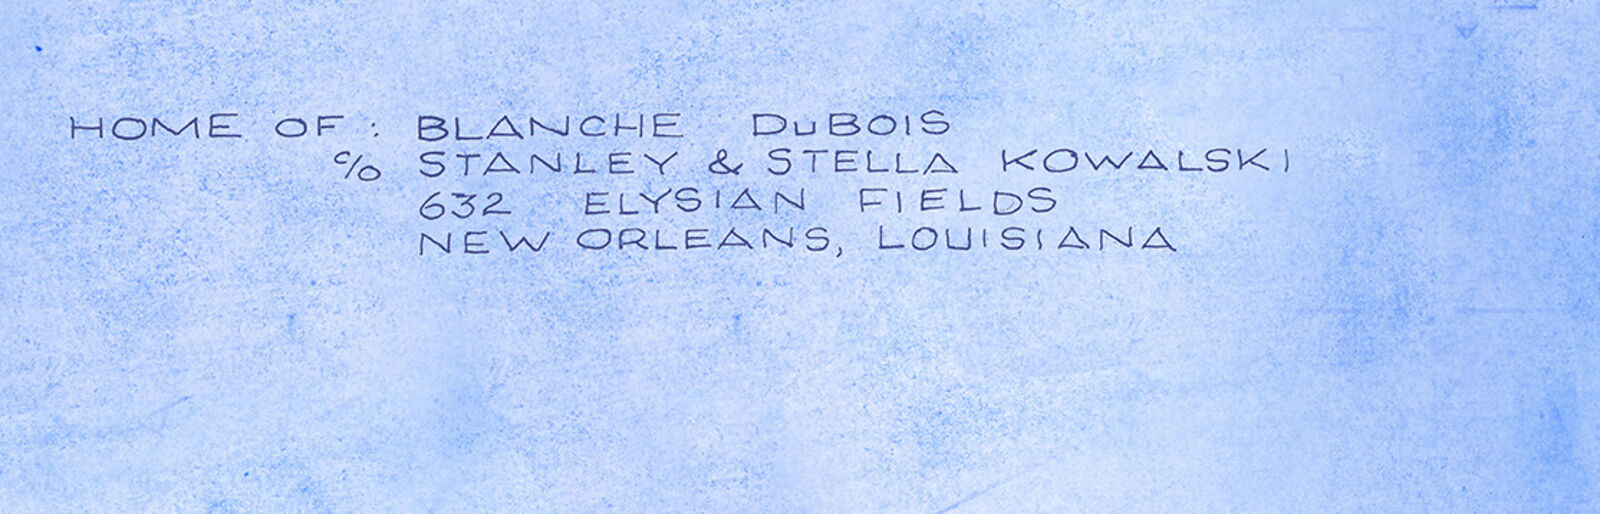 HOME OF: BLANCHE DuBOIS
c/o STANLEY & STELLA KOWALSKI
632 ELYSIAN FIELDS
NEW ORLEANS, LOUISIANA